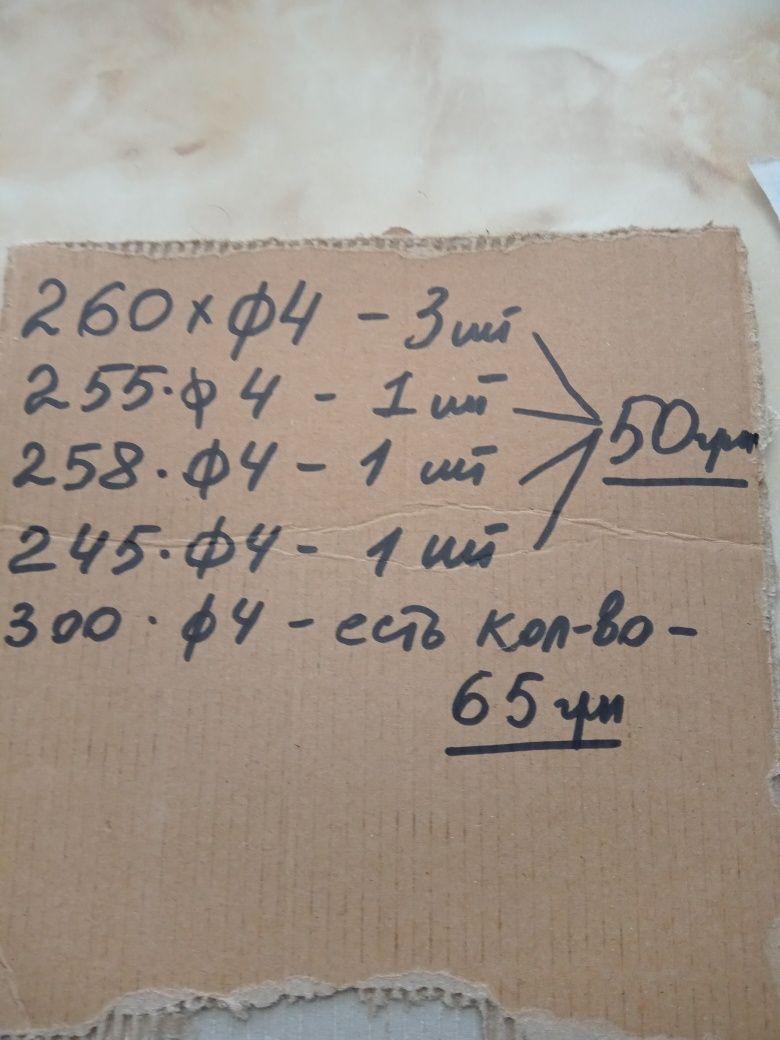 260xф4 - 3 шт
255·ф4 - 1 шт
258·ф4 - 1 шт
50 грн
245·ф4 - 1 шт
300·ф4 - есть кол-во -
65 грн